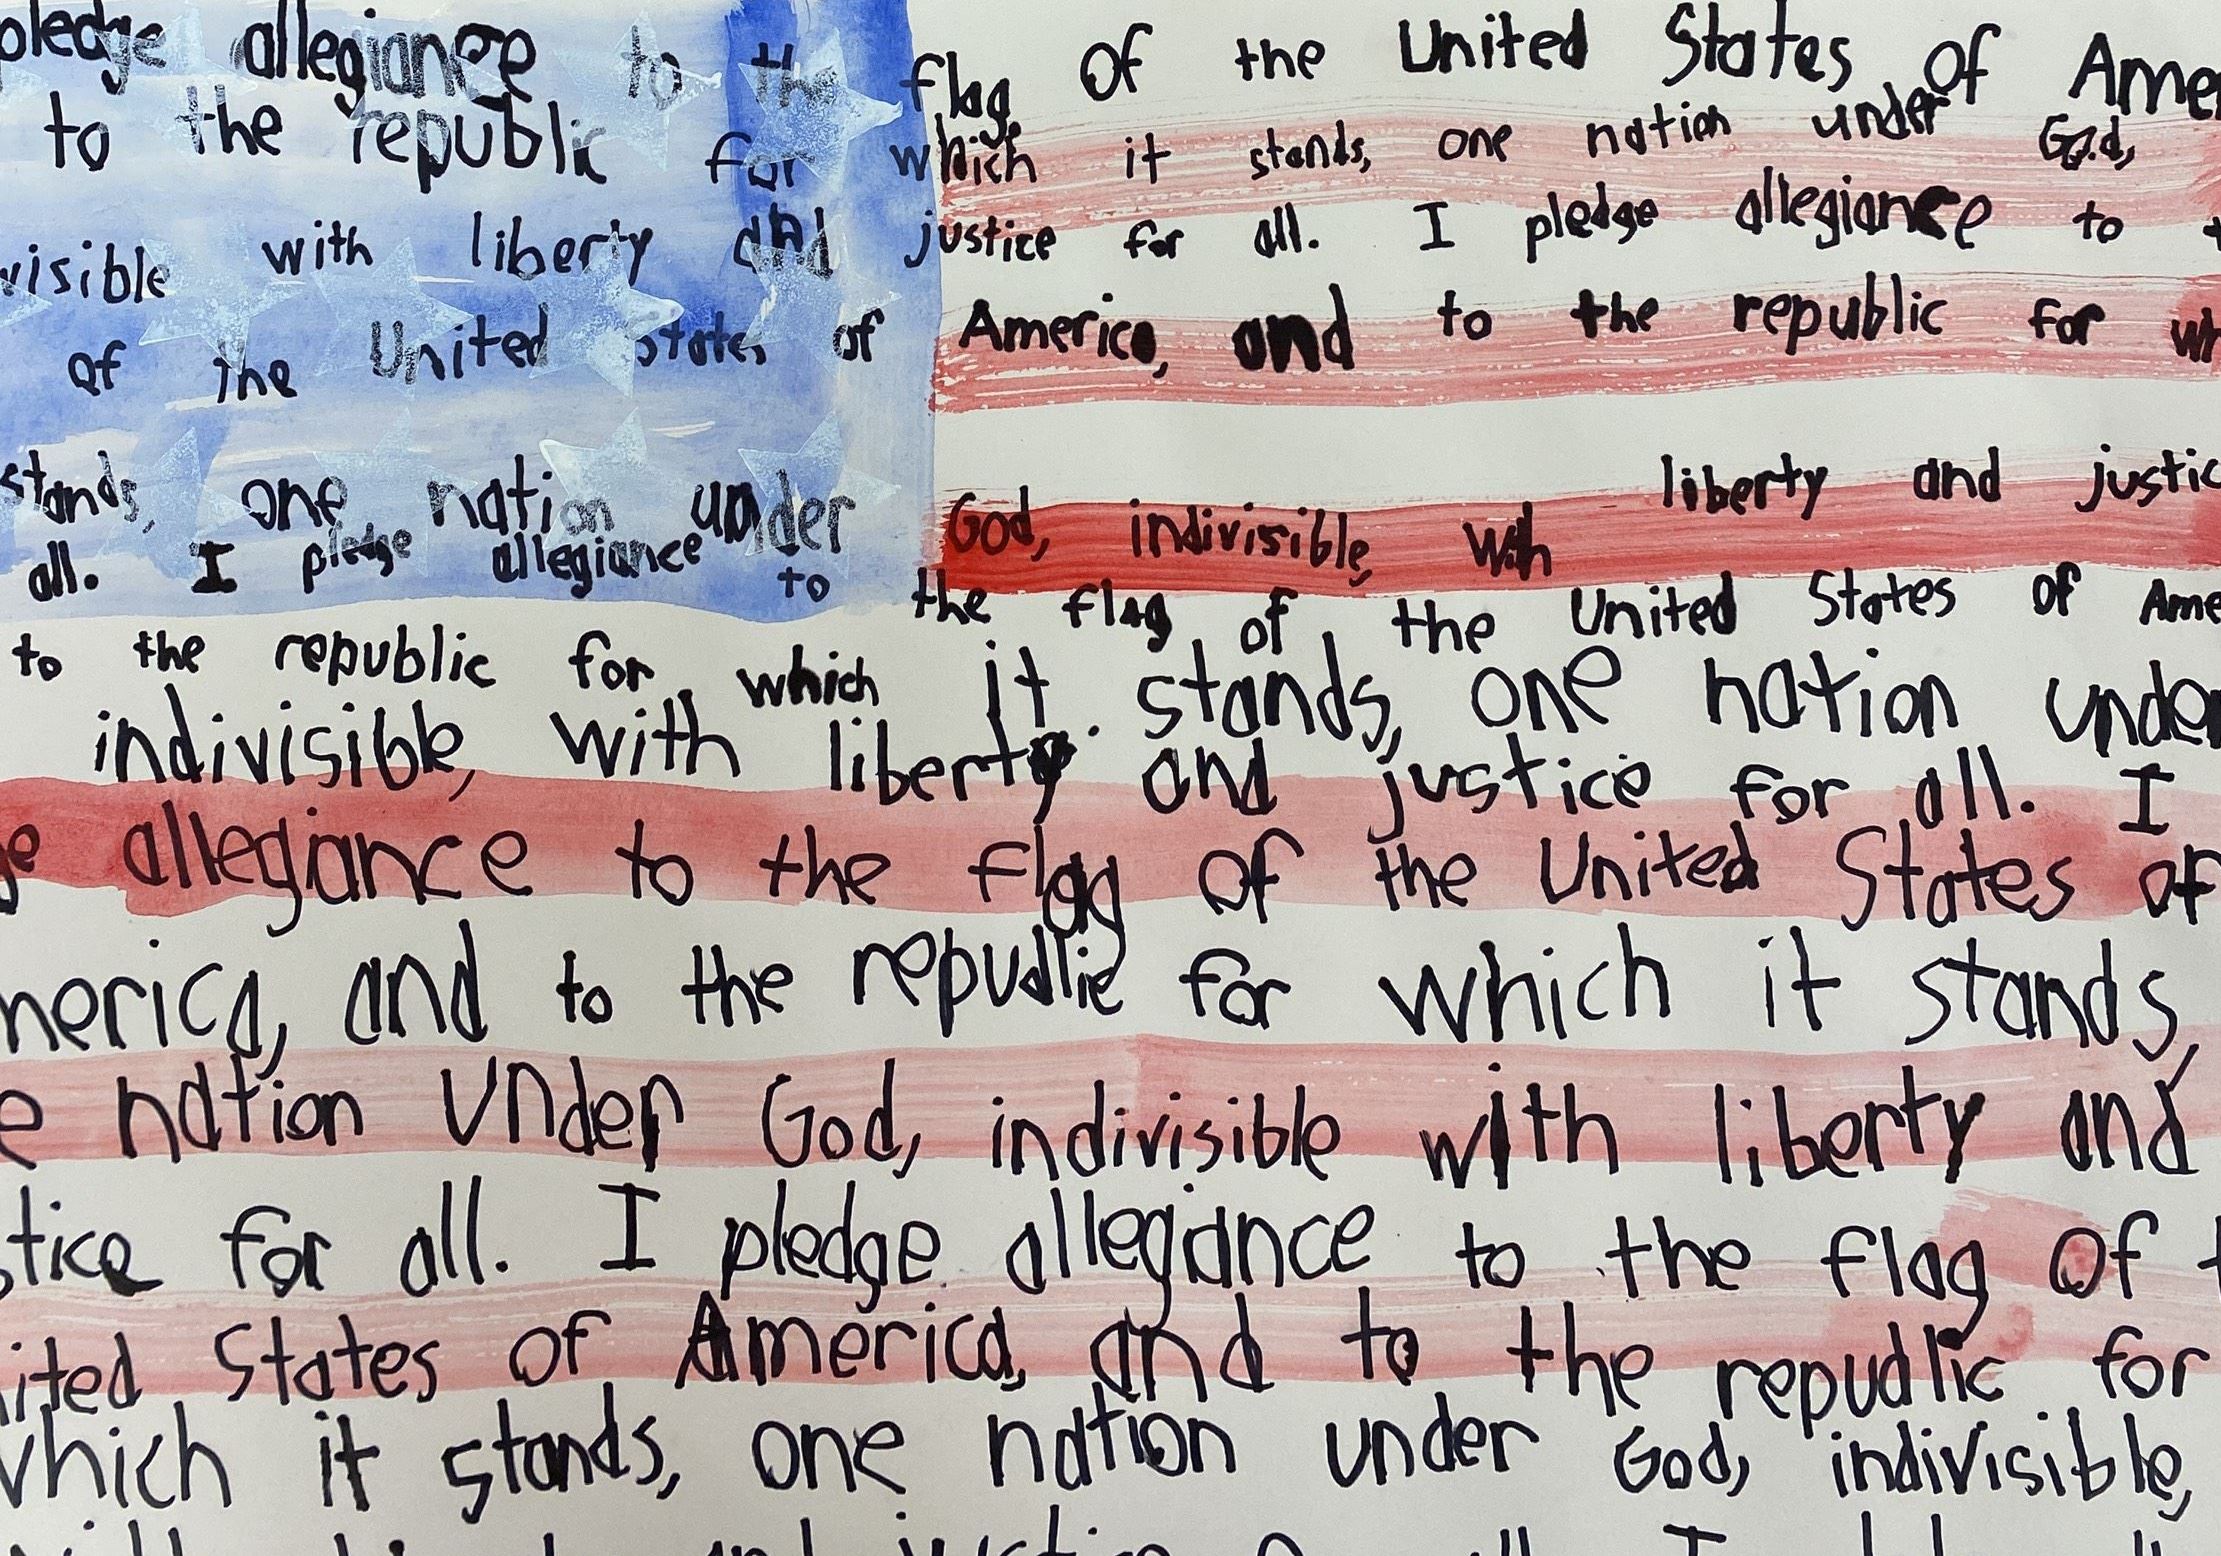 pledge allegiance to the flag of the United States of Ame
to the republic for which it stands, one nation under God,
visible with liberty and justice for all. I pledge allegiance to t
of the United States of America, and to the republic for wh
stands, one nation under God, indivisible, with liberty and justic
all. I pledge allegiance to the flag of the United States of Ame
to the republic for which it stands, one nation under
indivisible, with liberty and justice for all. I
ge allegiance to the flag of the United States of
merica, and to the repudlic for which it stands,
e nation under God, indivisible with liberty and
stice for all. I pledge allegiance to the flag of t
ited States of America, and to the repudlic for
which it stands, one nation under God, indivisible,